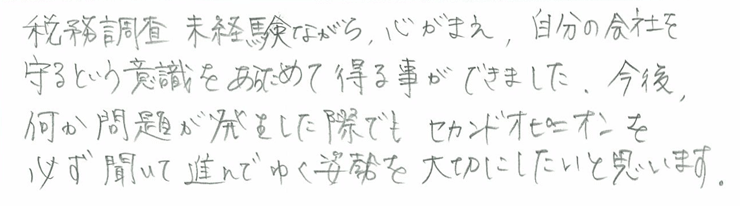 税務調査 未経験ながら、心がまえ、自分の会社を
守るという意識をあらためて得る事ができました。今後、
何か問題が発生した際でも セカンドオピニオンを
必ず聞いて進んでゆく姿勢を大切にしたいと思います。